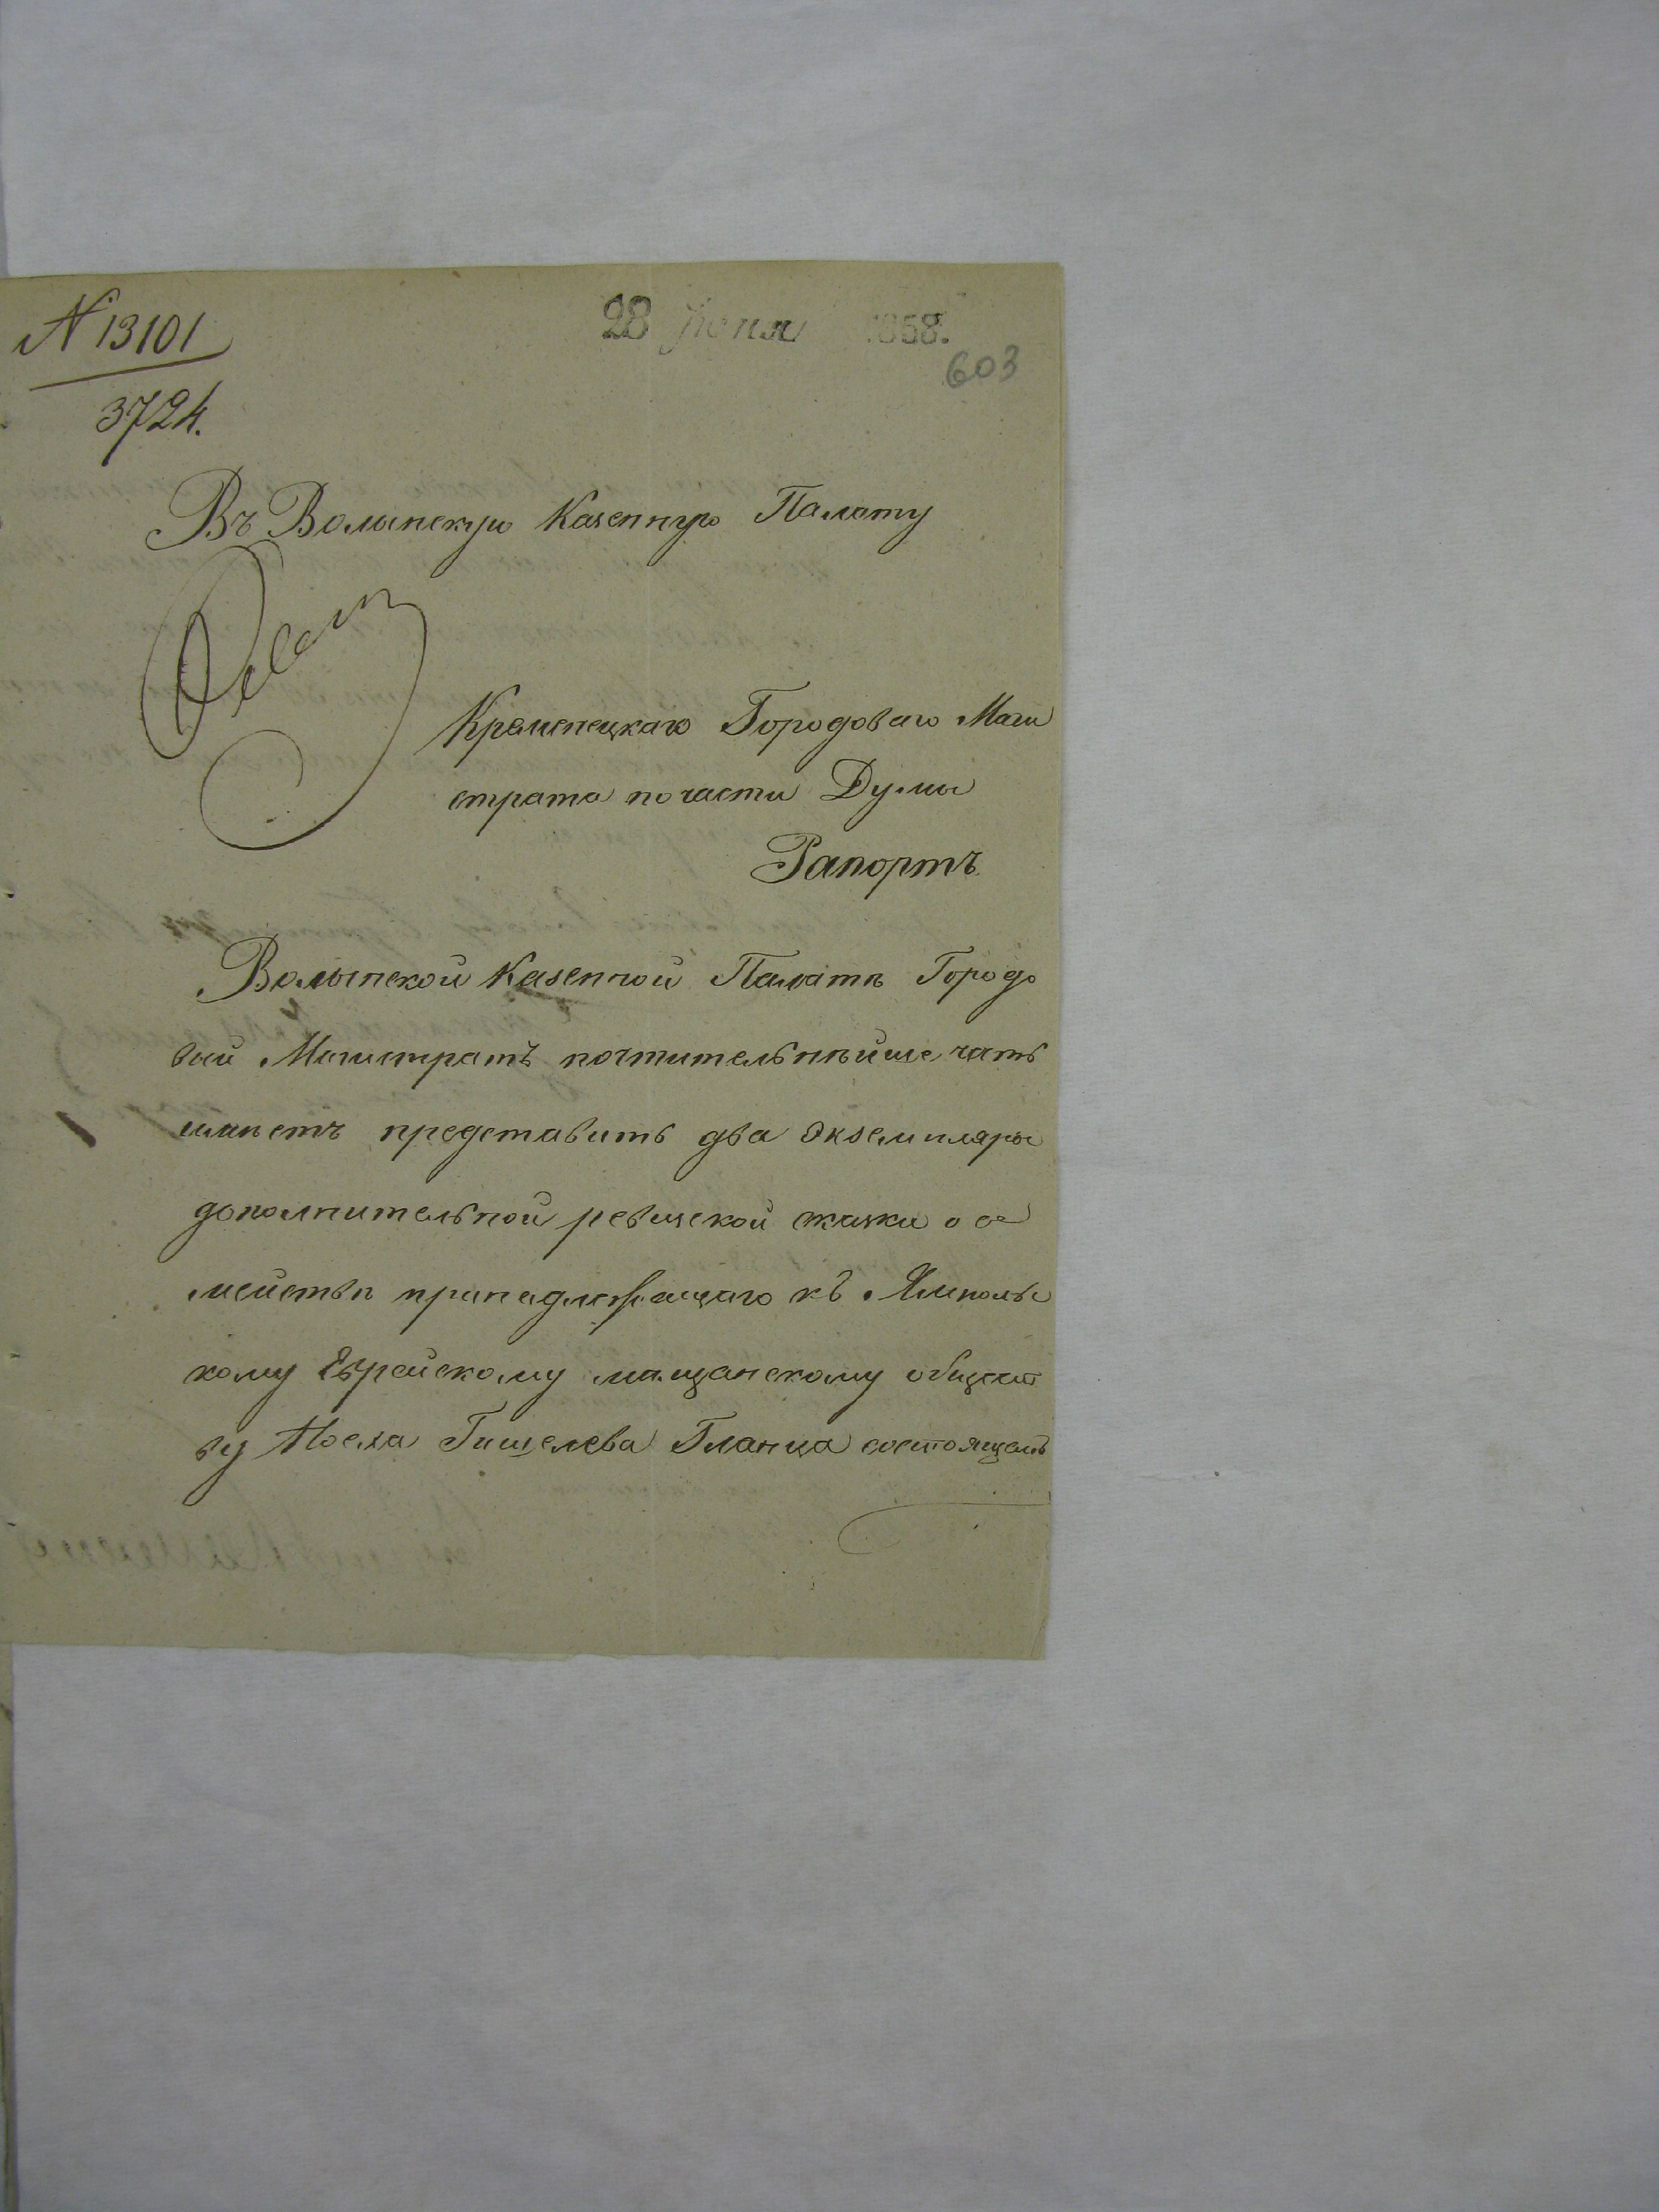 N 13101
3724.
28 Июня 1858.
603
Въ Волынскую Казенную Палату
Кременецкаго Городоваго Маги
страта по части Думы
Рапортъ
Волынской Казенной Палатѣ Городо
вый Магистратъ почтительнѣйше честь
имѣетъ представить два экземпляры
дополнительной ревизской сказки о се
мействѣ принадлежащаго къ Ямполь
кому Еврейскому мѣщанскому общест
ву Иосля Гишелева Гланца состоящемъ